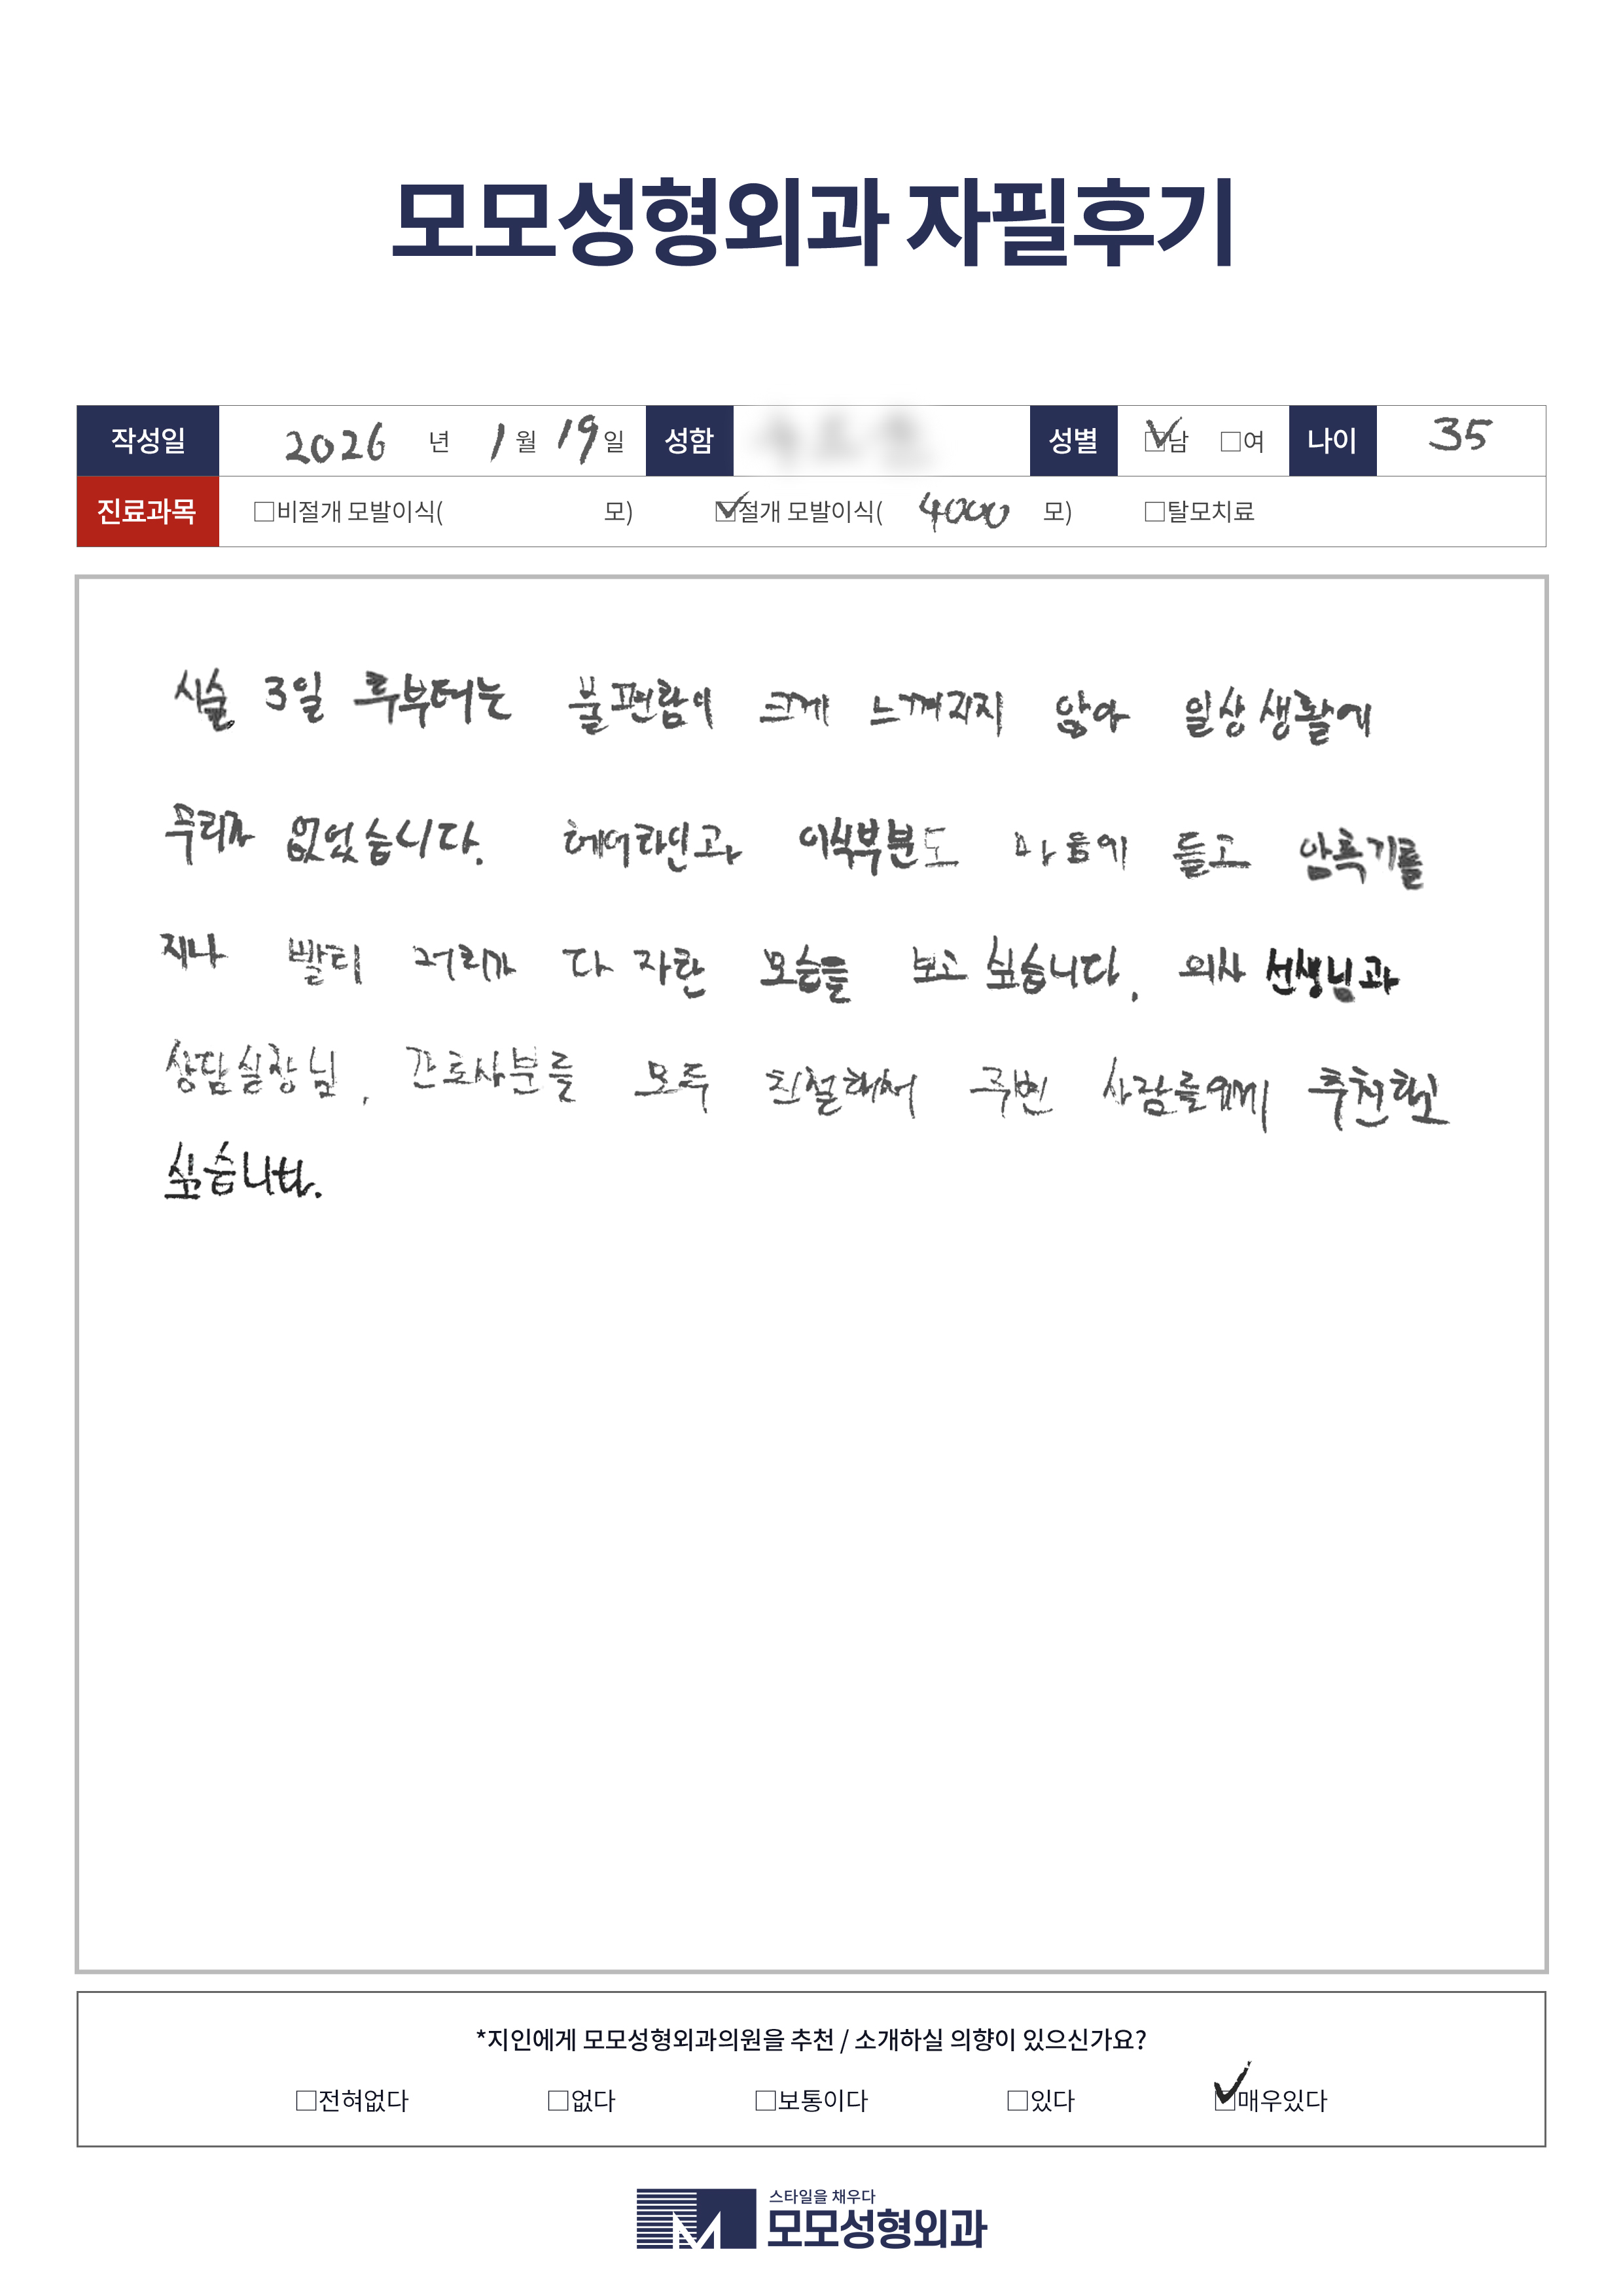 모모성형외과 자필후기
작성일 2026 년 1 월 19 일 성함 성별 ☑남 □여 나이 35
진료과목 □비절개 모발이식( 모) ☑절개 모발이식( 4000 모) □탈모치료
시술 3일 후부터는 불편함이 크게 느껴지지 않아 일상생활에
무리가 없었습니다. 헤어라인과 이식부분도 마음에 들고 암흑기를
지나 빨리 머리가 다 자란 모습을 보고 싶습니다. 의사 선생님과
상담실장님, 간호사분들 모두 친절해서 주변 사람들에게 추천하고
싶습니다.
*지인에게 모모성형외과의원을 추천 / 소개하실 의향이 있으신가요?
□전혀없다 □없다 □보통이다 □있다 ☑매우있다
스타일을 채우다
모모성형외과